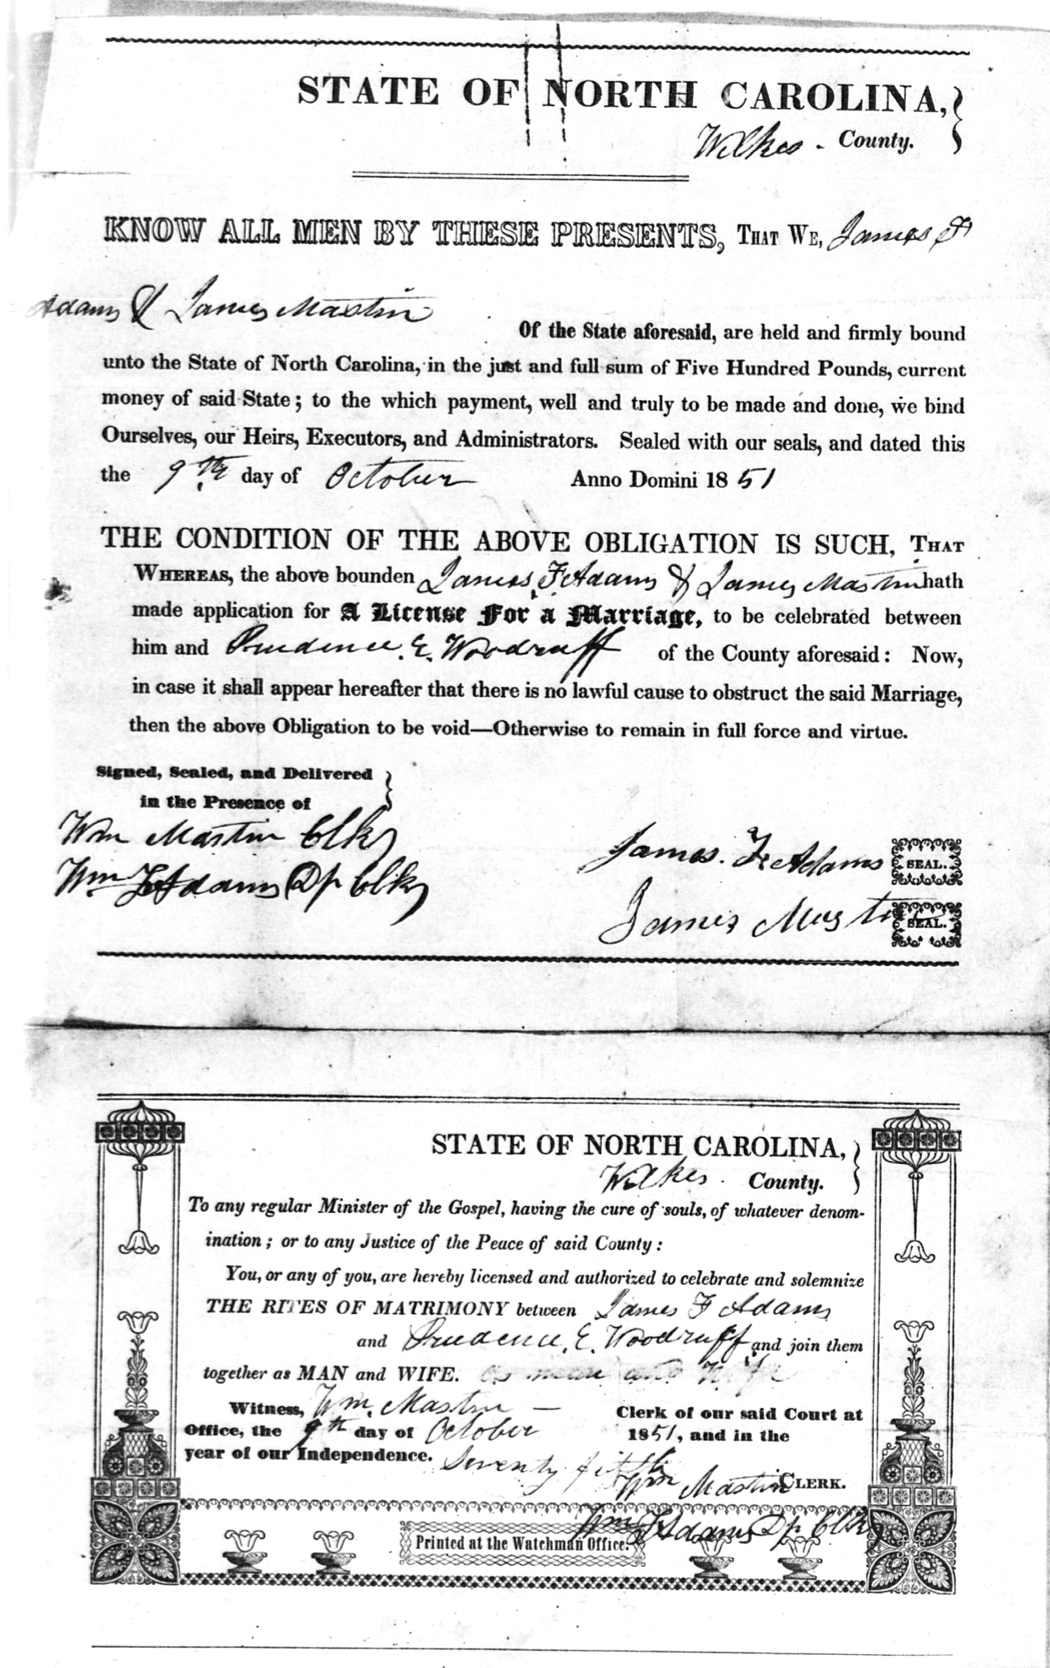 STATE OF NORTH CAROLINA,
Wilkes County.
KNOW ALL MEN BY THESE PRESENTS, THAT WE, James F
Adams & James Mastin
Of the State aforesaid, are held and firmly bound
unto the State of North Carolina, in the just and full sum of Five Hundred Pounds, current
money of said State; to the which payment, well and truly to be made and done, we bind
Ourselves, our Heirs, Executors, and Administrators. Sealed with our seals, and dated this
the 9th day of October Anno Domini 1851
THE CONDITION OF THE ABOVE OBLIGATION IS SUCH, THAT
WHEREAS, the above bounden James F Adams & James Mastin hath
made application for A License For a Marriage, to be celebrated between
him and Prudence. E. Woodruff of the County aforesaid: Now,
in case it shall appear hereafter that there is no lawful cause to obstruct the said Marriage,
then the above Obligation to be void—Otherwise to remain in full force and virtue.
Signed, Sealed, and Delivered
in the Presence of
Wm Mastin Clk
James. F. Adams SEAL.
Wm Adams Dp Clk
James Mastin SEAL.
STATE OF NORTH CAROLINA,
Wilkes. County.
To any regular Minister of the Gospel, having the cure of souls, of whatever denom-
ination; or to any Justice of the Peace of said County:
You, or any of you, are hereby licensed and authorized to celebrate and solemnize
THE RITES OF MATRIMONY between James F Adams
and Prudence. E. Woodruff and join them
together as MAN and WIFE. as man and Wife
Witness, Wm. Mastin — Clerk of our said Court at
Office, the 9th day of October 1851, and in the
year of our Independence. Seventy fifth
Wm Mastin CLERK.
Wm Adams Dp Clk
Printed at the Watchman Office.